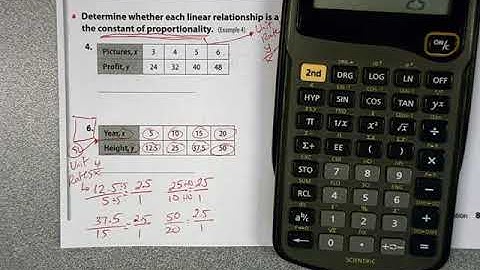 Determine whether each linear relationship is a
the constant of proportionality. (Example 4)
4.
Pictures, x 3 4 5 6
Profit, y 24 32 40 48
Unit
Rate
y
x
6.
Year, x 5 10 15 20
Height, y 12.5 25 37.5 50
Unit
Rates y
x
12.5÷5 2.5 25÷10 2.5
5÷5 1 10÷10 1
37.5 = 2.5 50 = 2.5
15 1 20 1
2.5
ON/C
2nd DRG LOG LN OFF
HYP SIN COS TAN yˣ
π 1/x x² √x ÷
Σ+ EE ( ) ×
STO 7 8 9 −
RCL 4 5 6 +
aᵇ/c 1 2 3
0 .
SCIENTIFIC
8